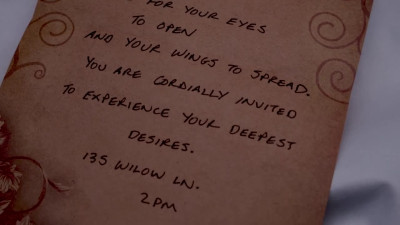 FOR YOUR EYES
TO OPEN
AND YOUR WINGS TO SPREAD.
YOU ARE CORDIALLY INVITED
TO EXPERIENCE YOUR DEEPEST
DESIRES.
135 WILOW LN.
2PM